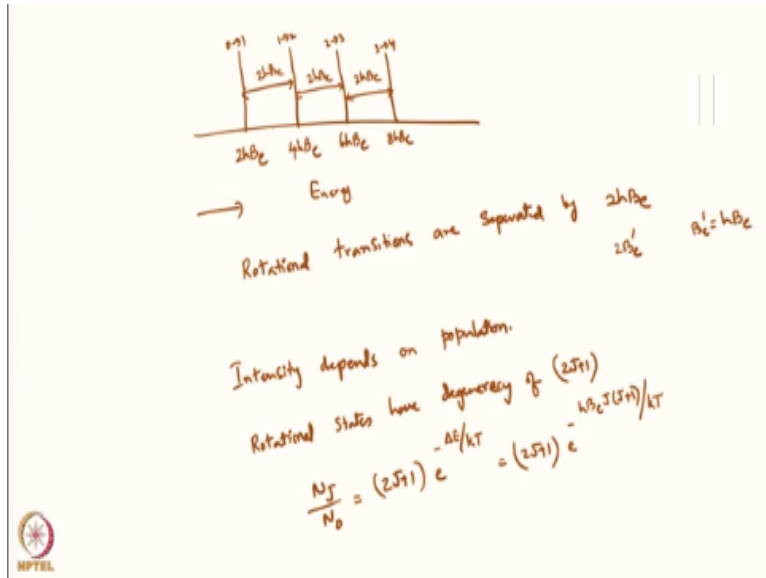 0→1 1→2 2→3 3→4
2hBe 2hBe 2hBe
2hBe 4hBe 6hBe 8hBe
→ Energy
Rotational transitions are separated by 2hBe
2Be' Be' = hBe
Intensity depends on population.
Rotational states have degeneracy of (2J+1)
NJ/N0 = (2J+1) e^-ΔE/kT = (2J+1) e^-hBe J(J+1)/kT
NPTEL